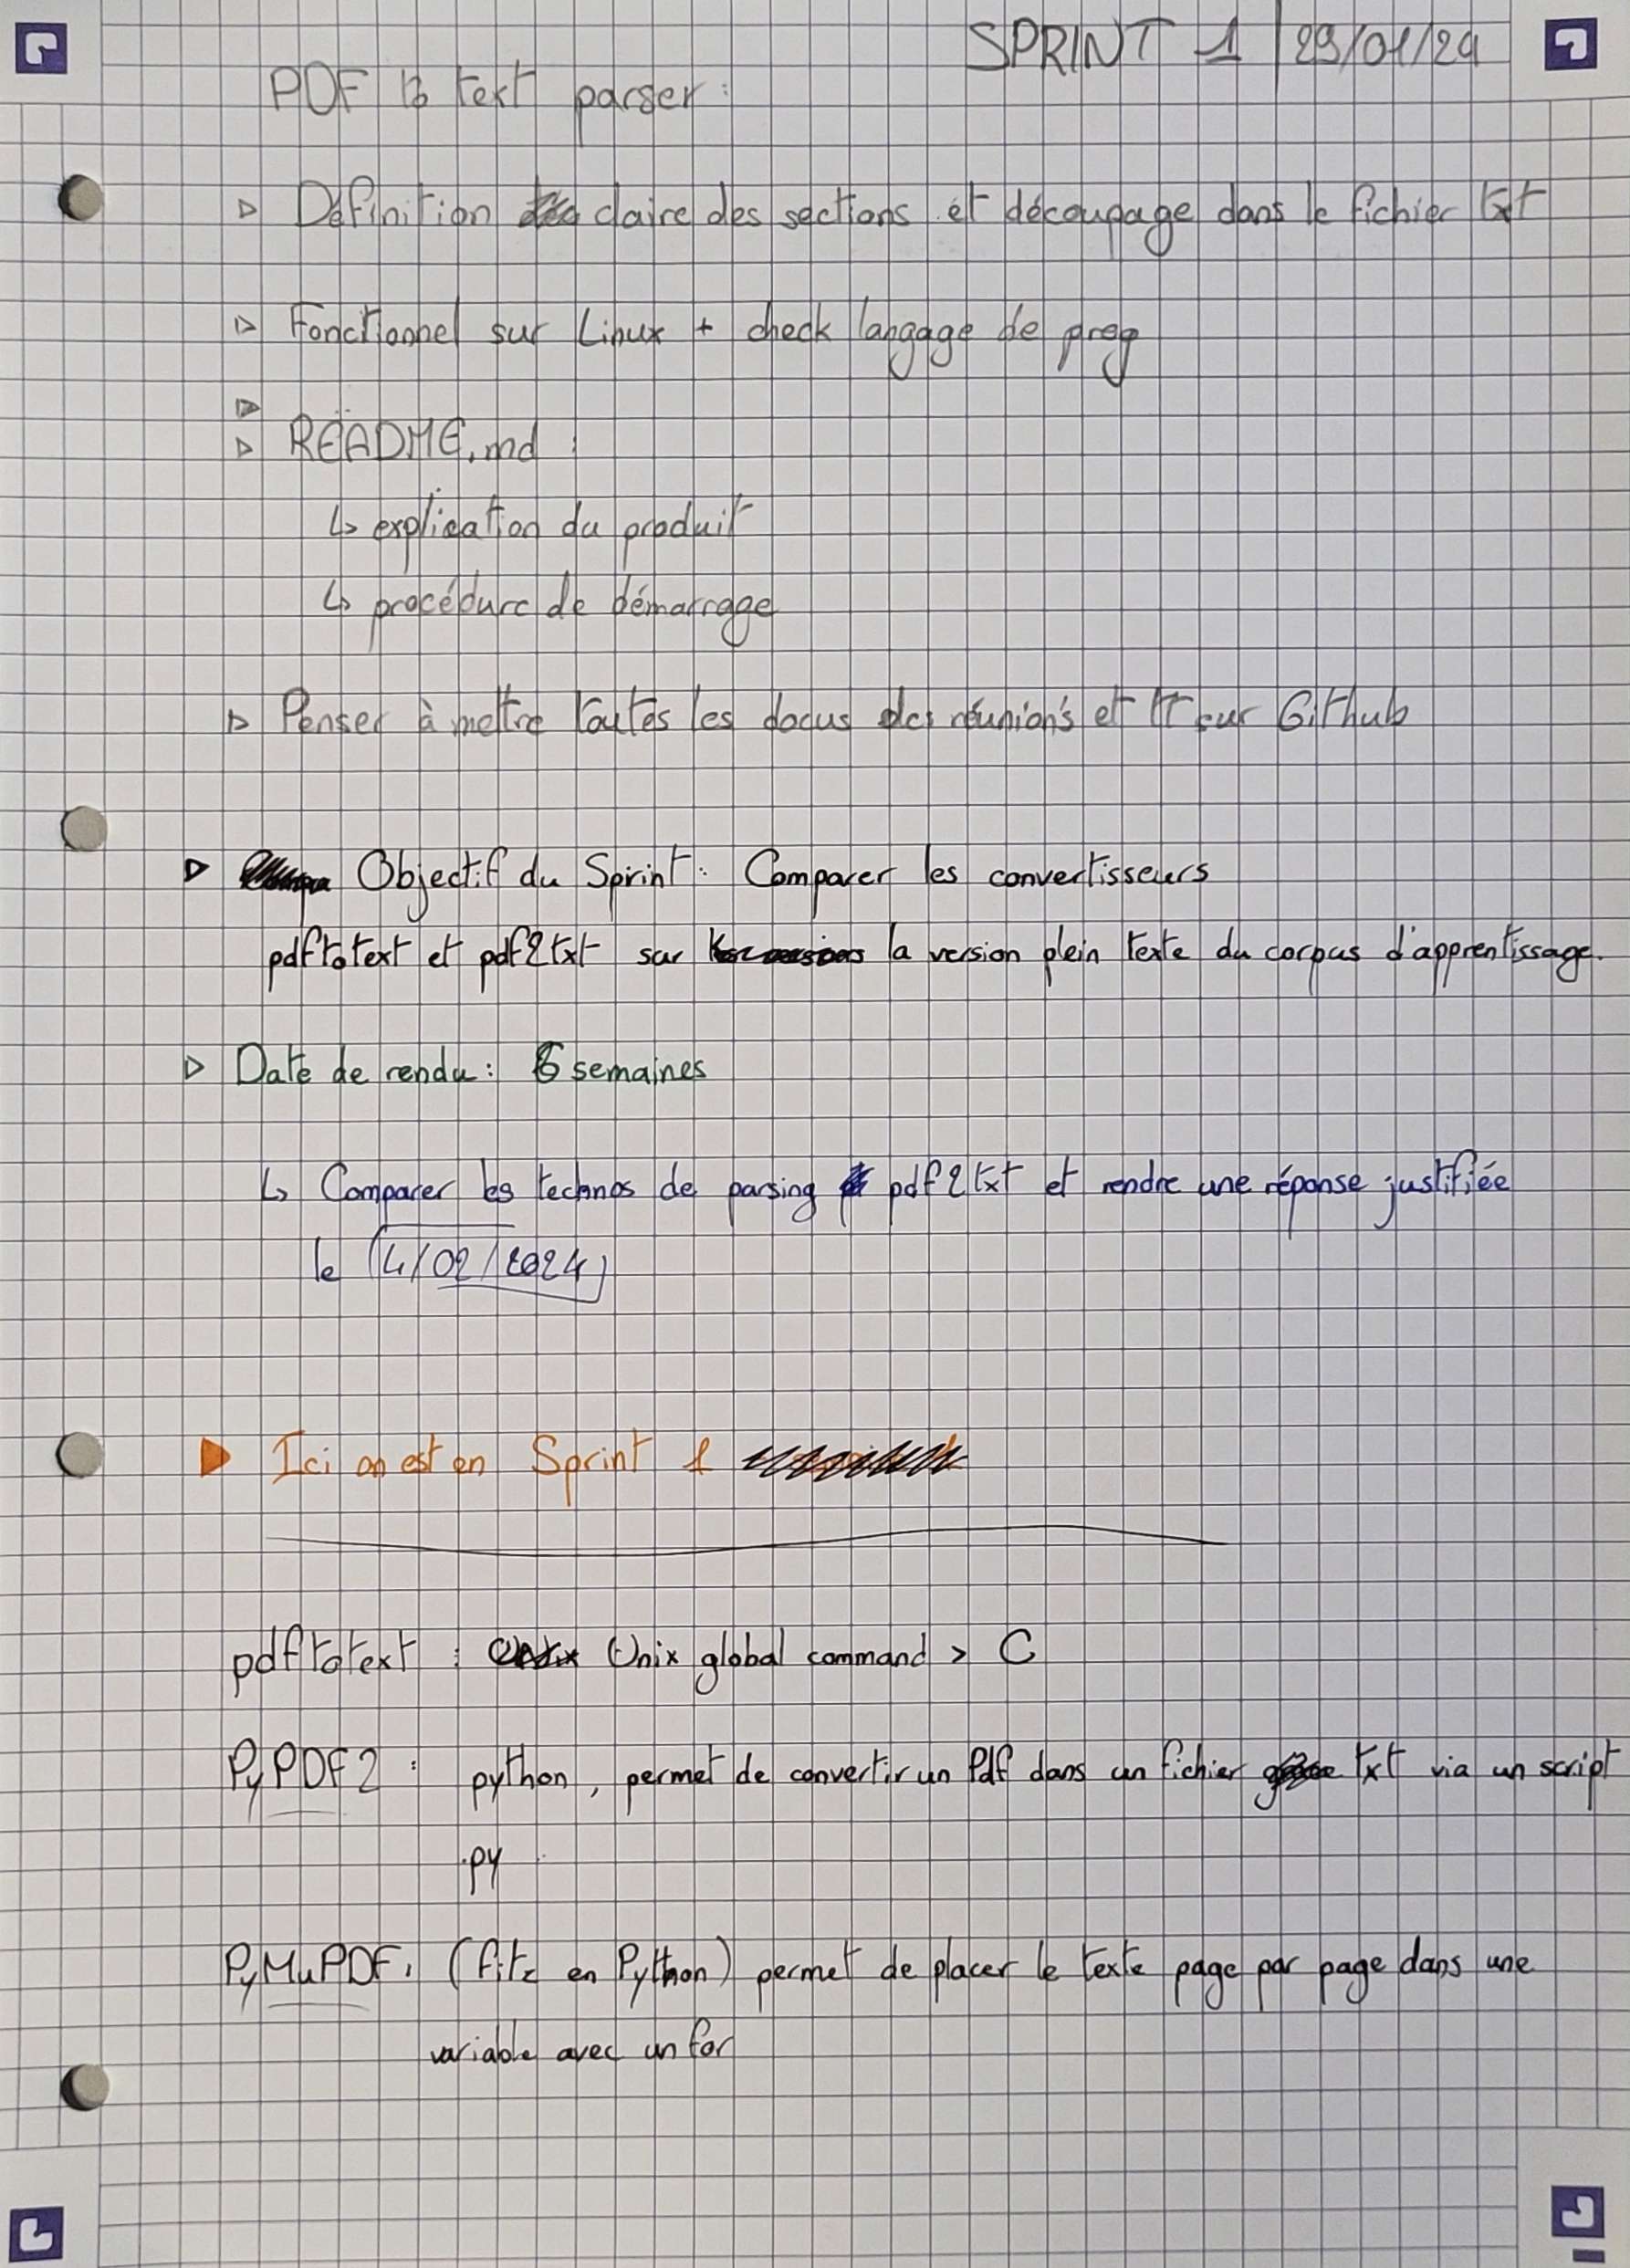 SPRINT 1 | 29/01/24
PDF to text parser:
▷ Définition claire des sections et découpage dans le fichier txt
▷ Fonctionnel sur Linux + check langage de prog
▷
▷ README.md :
↳ explication du produit
↳ procédure de démarrage
▷ Penser à mettre toutes les docus des réunions et tt sur Github
▷ Objectif du Sprint : Comparer les convertisseurs
pdftotext et pdf2txt sur la version plein texte du corpus d'apprentissage.
▷ Date de rendu : 6 semaines
↳ Comparer les technos de parsing pdf2txt et rendre une réponse justifiée
le 4/02/2024
▶ Ici on est en Sprint 1
pdftotext : Unix global command > C
PyPDF2 : python, permet de convertir un Pdf dans un fichier txt via un script
.py
PyMuPDF, (fitz en Python) permet de placer le texte page par page dans une
variable avec un for